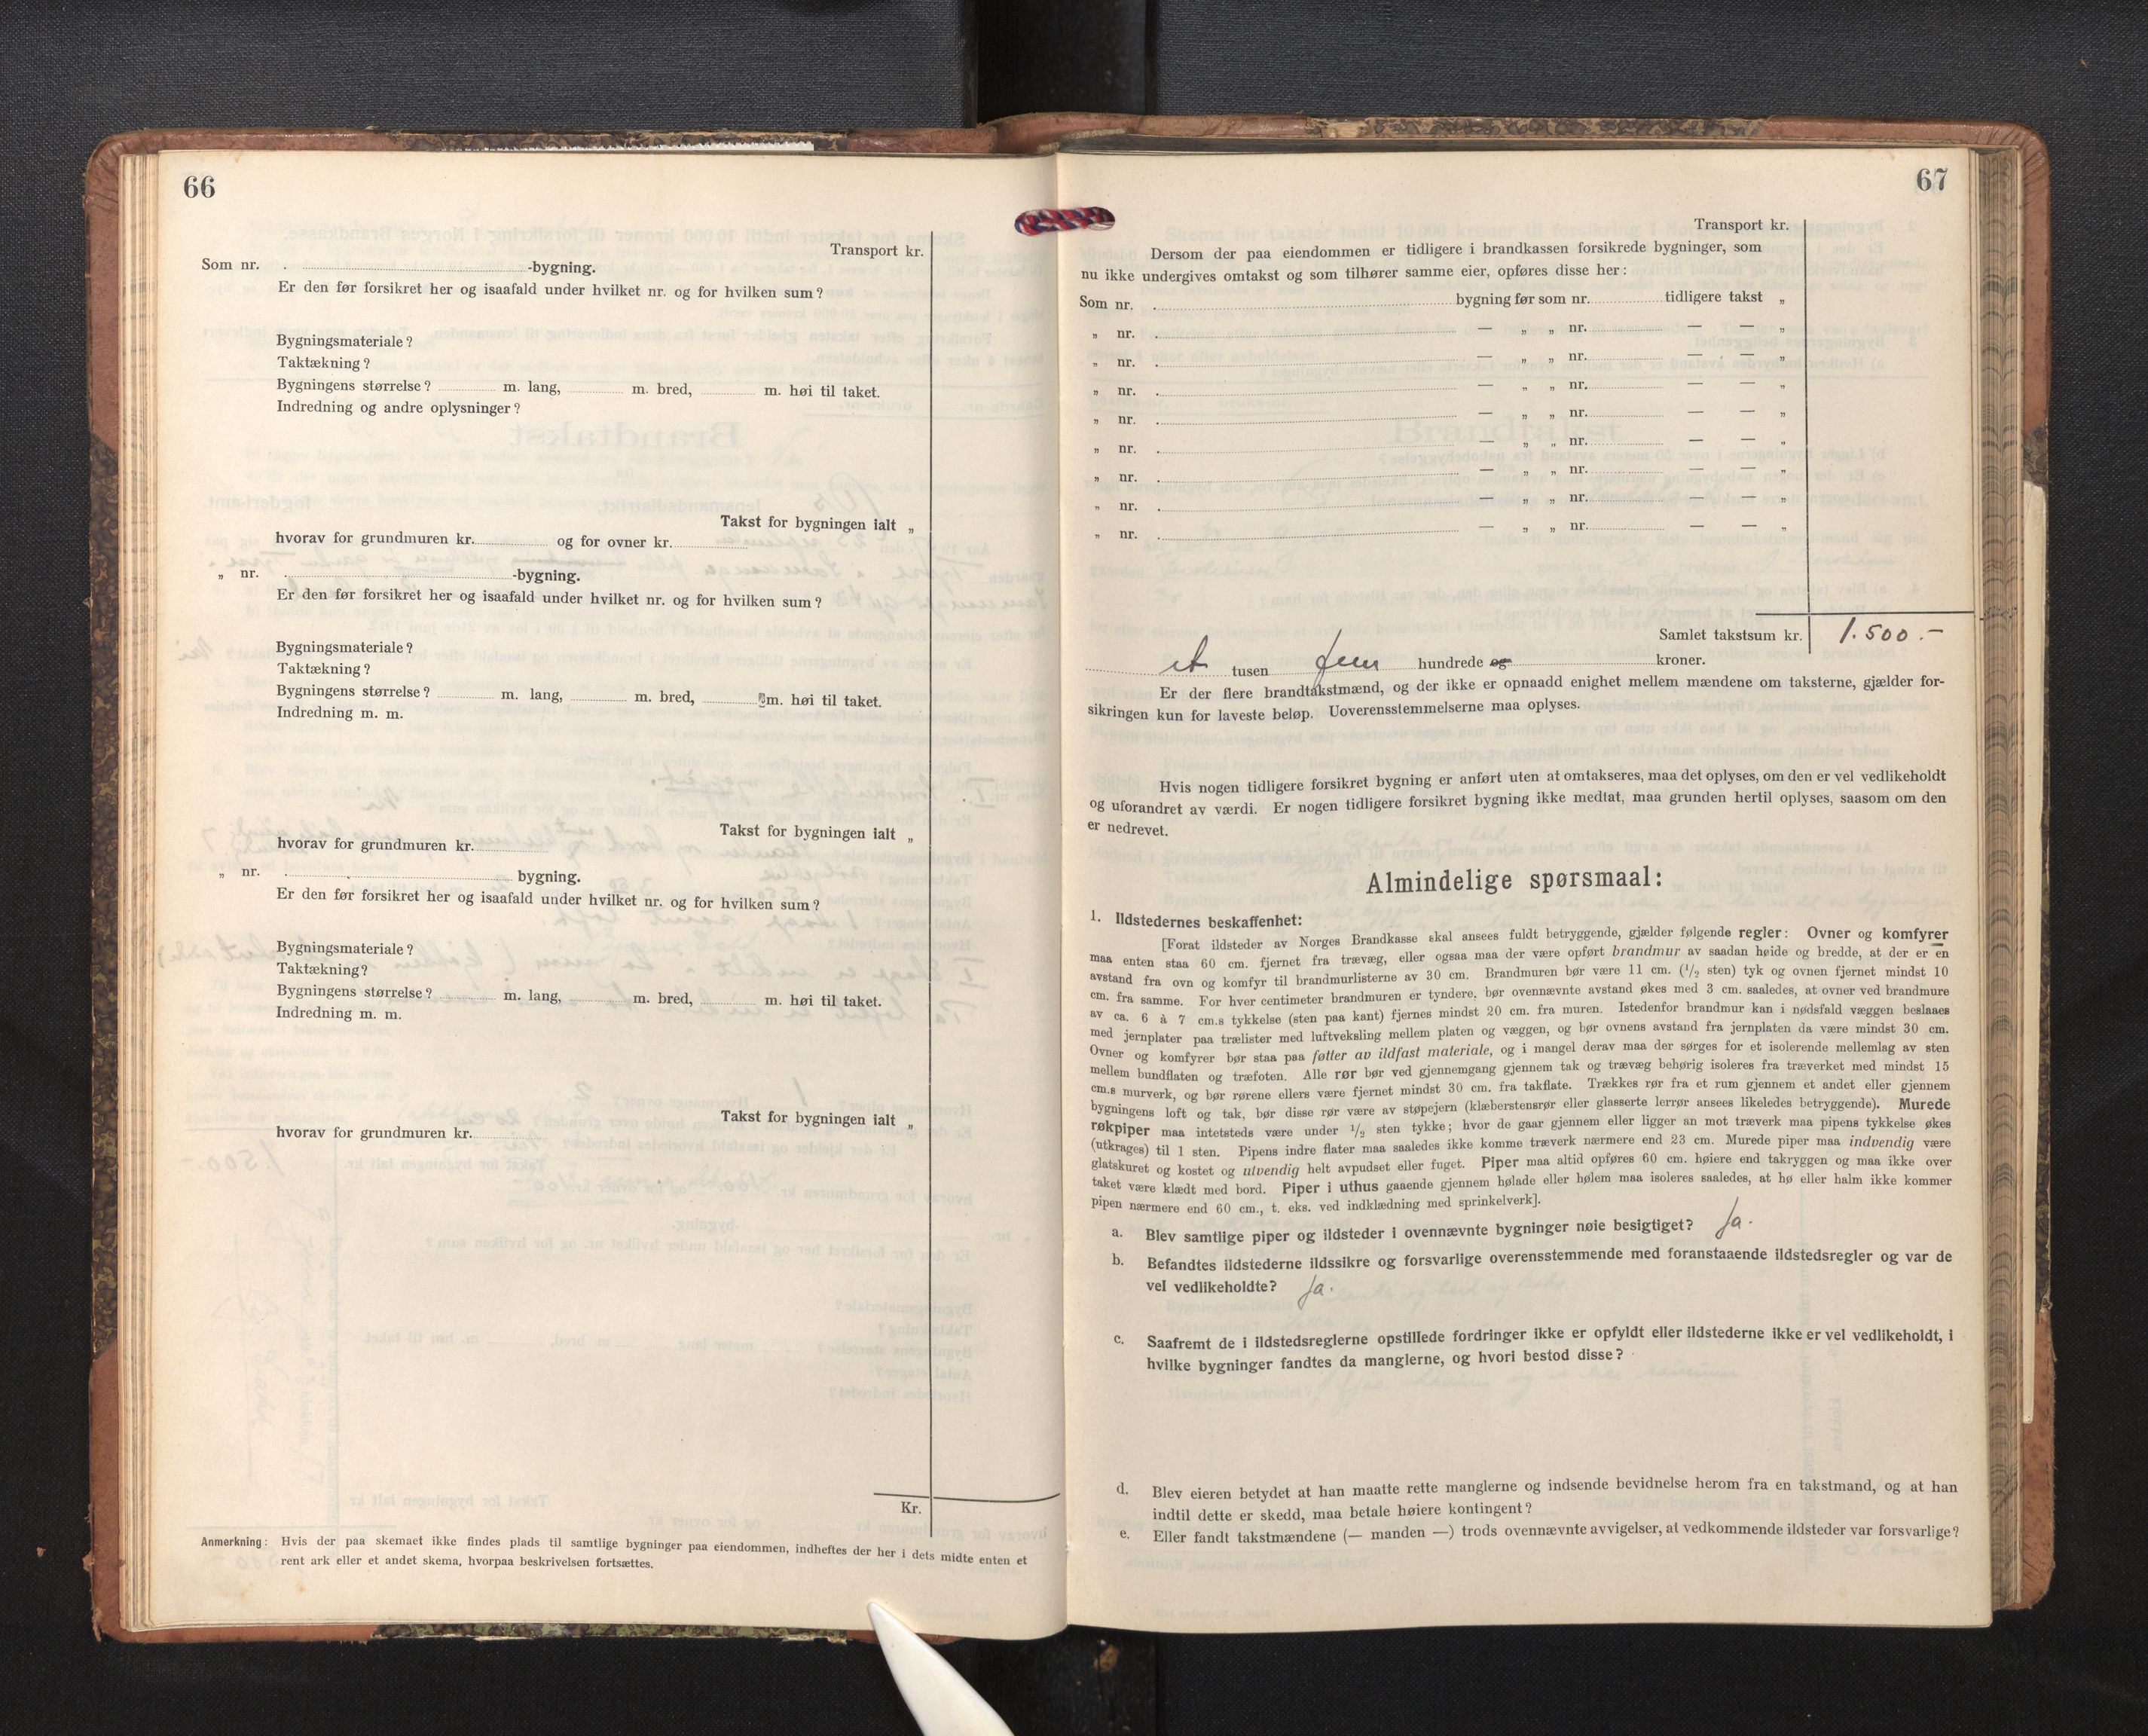 66
Transport kr.
Som nr. . -bygning.
Er den før forsikret her og isaafald under hvilket nr. og for hvilken sum?
Bygningsmateriale?
Taktækning?
Bygningens størrelse? m. lang, m. bred, m. høi til taket.
Indredning og andre oplysninger?
Takst for bygningen ialt „
hvorav for grundmuren kr. og for ovner kr.
„ nr. . -bygning.
Er den før forsikret her og isaafald under hvilket nr. og for hvilken sum?
Bygningsmateriale?
Taktækning?
Bygningens størrelse? m. lang, m. bred, m. høi til taket.
Indredning m. m.
Takst for bygningen ialt „
hvorav for grundmuren kr.
„ nr. . bygning.
Er den før forsikret her og isaafald under hvilket nr. og for hvilken sum?
Bygningsmateriale?
Taktækning?
Bygningens størrelse? m. lang, m. bred, m. høi til taket.
Indredning m. m.
Takst for bygningen ialt „
hvorav for grundmuren kr.
Kr.
Anmerkning: Hvis der paa skemaet ikke findes plads til samtlige bygninger paa eiendommen, indheftes der her i dets midte enten et
rent ark eller et andet skema, hvorpaa beskrivelsen fortsættes.
67
Transport kr.
Dersom der paa eiendommen er tidligere i brandkassen forsikrede bygninger, som
nu ikke undergives omtakst og som tilhører samme eier, opføres disse her:
Som nr. . bygning før som nr. tidligere takst „
„ nr. . — „ „ nr. — — „
„ nr. . — „ „ nr. — — „
„ nr. . — „ „ nr. — — „
„ nr. . — „ „ nr. — — „
„ nr. . — „ „ nr. — — „
„ nr. . — „ „ nr. — — „
„ nr. . — „ „ nr. — — „
„ nr. . — „ „ nr. — — „
Samlet takstsum kr. 1.500.-
et tusen fem hundrede og kroner.
Er der flere brandtakstmænd, og der ikke er opnaadd enighet mellem mændene om taksterne, gjælder for-
sikringen kun for laveste beløp. Uoverensstemmelserne maa oplyses.
Hvis nogen tidligere forsikret bygning er anført uten at omtakseres, maa det oplyses, om den er vel vedlikeholdt
og uforandret av værdi. Er nogen tidligere forsikret bygning ikke medtat, maa grunden hertil oplyses, saasom om den
er nedrevet.
Almindelige spørsmaal:
1. Ildstedernes beskaffenhet:
[Forat ildsteder av Norges Brandkasse skal ansees fuldt betryggende, gjælder følgende regler: Ovner og komfyrer
maa enten staa 60 cm. fjernet fra trævæg, eller ogsaa maa der være opført brandmur av saadan høide og bredde, at der er en
avstand fra ovn og komfyr til brandmurlisterne av 30 cm. Brandmuren bør være 11 cm. (1/2 sten) tyk og ovnen fjernet mindst 10
cm. fra samme. For hver centimeter brandmuren er tyndere, bør ovennævnte avstand økes med 3 cm. saaledes, at ovner ved brandmure
av ca. 6 à 7 cm.s tykkelse (sten paa kant) fjernes mindst 20 cm. fra muren. Istedenfor brandmur kan i nødsfald væggen beslaaes
med jernplater paa trælister med luftveksling mellem platen og væggen, og bør ovnens avstand fra jernplaten da være mindst 30 cm.
Ovner og komfyrer bør staa paa føtter av ildfast materiale, og i mangel derav maa der sørges for et isolerende mellemlag av sten
mellem bundflaten og træfoten. Alle rør bør ved gjennemgang gjennem tak og trævæg behørig isoleres fra træverket med mindst 15
cm.s murverk, og bør rørene ellers være fjernet mindst 30 cm. fra takflate. Trækkes rør fra et rum gjennem et andet eller gjennem
bygningens loft og tak, bør disse rør være av støpejern (klæberstensrør eller glasserte lerrør ansees likeledes betryggende). Murede
røkpiper maa intetsteds være under 1/2 sten tykke; hvor de gaar gjennem eller ligger an mot træverk maa pipens tykkelse økes
(utkrages) til 1 sten. Pipens indre flater maa saaledes ikke komme træverk nærmere end 23 cm. Murede piper maa indvendig være
glatskuret og kostet og utvendig helt avpudset eller fuget. Piper maa altid opføres 60 cm. høiere end takryggen og maa ikke over
taket være klædt med bord. Piper i uthus gaaende gjennem hølade eller hølem maa isoleres saaledes, at hø eller halm ikke kommer
pipen nærmere end 60 cm., t. eks. ved indklædning med sprinkelverk].
a. Blev samtlige piper og ildsteder i ovennævnte bygninger nøie besigtiget? Ja.
b. Befandtes ildstederne ildssikre og forsvarlige overensstemmende med foranstaaende ildstedsregler og var de
vel vedlikeholdte? Ja.
c. Saafremt de i ildstedsreglerne opstillede fordringer ikke er opfyldt eller ildstederne ikke er vel vedlikeholdt, i
hvilke bygninger fandtes da manglerne, og hvori bestod disse?
d. Blev eieren betydet at han maatte rette manglerne og indsende bevidnelse herom fra en takstmand, og at han
indtil dette er skedd, maa betale høiere kontingent?
e. Eller fandt takstmændene (— manden —) trods ovennævnte avvigelser, at vedkommende ildsteder var forsvarlige?